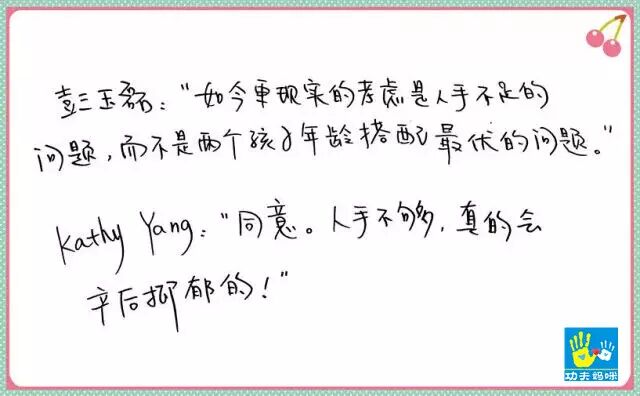 彭玉磊："如今更现实的考虑是人手不足的
问题，而不是两个孩子年龄搭配最优的问题。"
Kathy Yang："同意。人手不够多，真的会
产后抑郁的！"
功夫妈咪